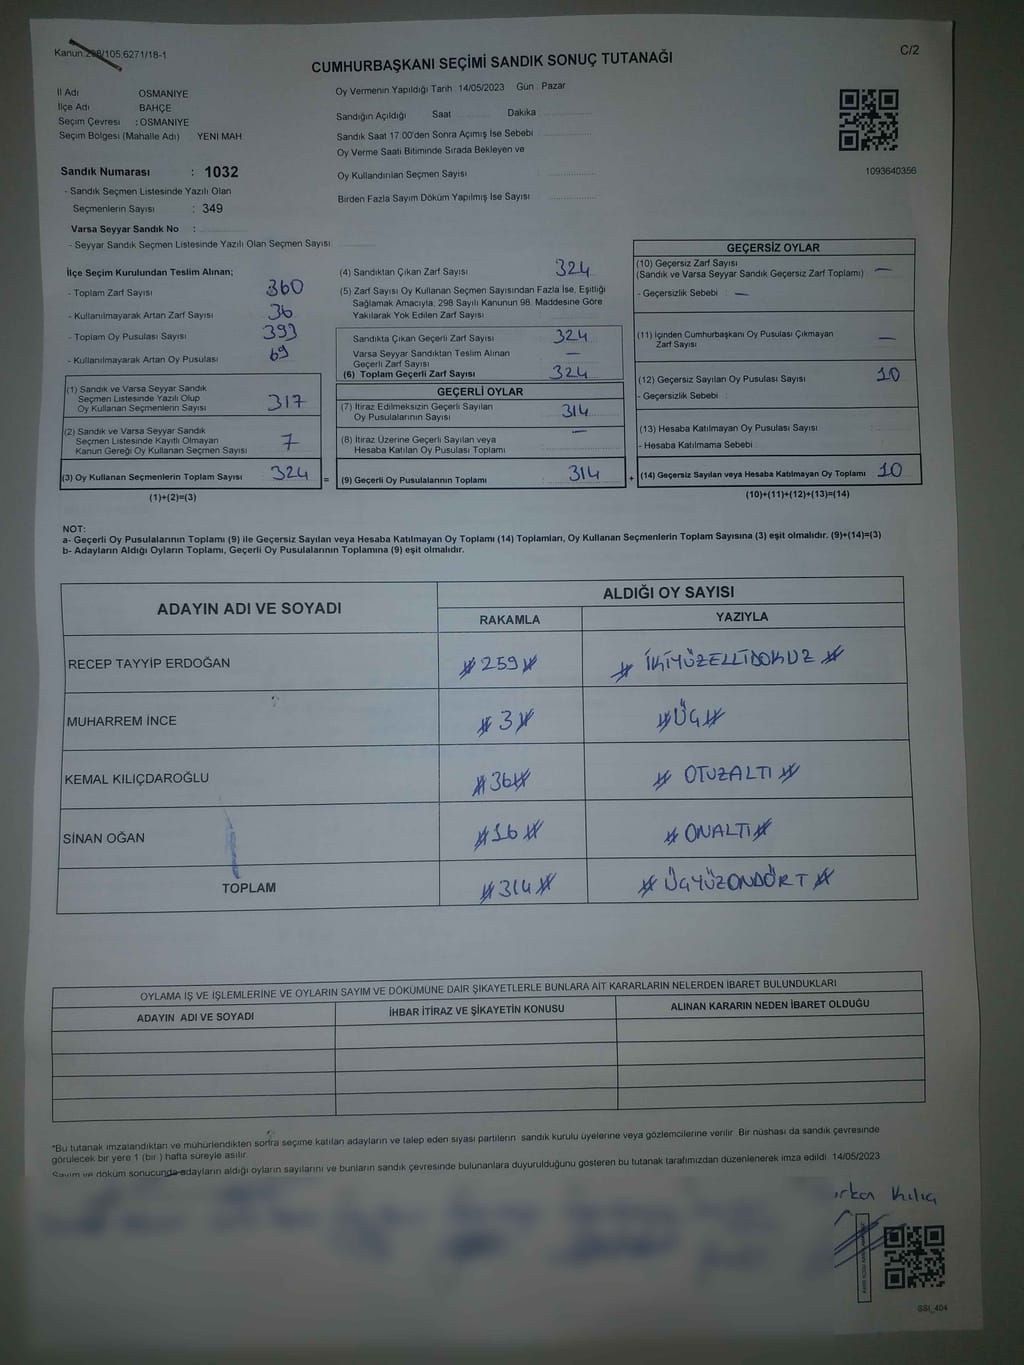 Kanun:298/105.6271/18-1
C/2
CUMHURBAŞKANI SEÇİMİ SANDIK SONUÇ TUTANAĞI
İl Adı OSMANİYE
İlçe Adı BAHÇE
Seçim Çevresi : OSMANİYE
Seçim Bölgesi (Mahalle Adı) YENİ MAH
Sandık Numarası : 1032
- Sandık Seçmen Listesinde Yazılı Olan
Seçmenlerin Sayısı : 349
Varsa Seyyar Sandık No :
- Seyyar Sandık Seçmen Listesinde Yazılı Olan Seçmen Sayısı
Oy Vermenin Yapıldığı Tarih 14/05/2023 Gün Pazar
Sandığın Açıldığı Saat Dakika
Sandık Saat 17:00'den Sonra Açımış İse Sebebi
Oy Verme Saati Bitiminde Sırada Bekleyen ve
Oy Kullandırılan Seçmen Sayısı
Birden Fazla Sayım Döküm Yapılmış İse Sayısı
1093640356
İlçe Seçim Kurulundan Teslim Alınan;
- Toplam Zarf Sayısı 360
- Kullanılmayarak Artan Zarf Sayısı 36
- Toplam Oy Pusulası Sayısı 393
- Kullanılmayarak Artan Oy Pusulası 69
(1) Sandık ve Varsa Seyyar Sandık
Seçmen Listesinde Yazılı Olup
Oy Kullanan Seçmenlerin Sayısı 317
(2) Sandık ve Varsa Seyyar Sandık
Seçmen Listesinde Kayıtlı Olmayan
Kanun Gereği Oy Kullanan Seçmen Sayısı 7
(3) Oy Kullanan Seçmenlerin Toplam Sayısı 324
(1)+(2)=(3)
(4) Sandıktan Çıkan Zarf Sayısı 324
(5) Zarf Sayısı Oy Kullanan Seçmen Sayısından Fazla İse, Eşitliği
Sağlamak Amacıyla, 298 Sayılı Kanunun 98. Maddesine Göre
Yakılarak Yok Edilen Zarf Sayısı
Sandıkta Çıkan Geçerli Zarf Sayısı 324
Varsa Seyyar Sandıktan Teslim Alınan
Geçerli Zarf Sayısı —
(6) Toplam Geçerli Zarf Sayısı 324
GEÇERLİ OYLAR
(7) İtiraz Edilmeksizin Geçerli Sayılan
Oy Pusulalarının Sayısı 314
(8) İtiraz Üzerine Geçerli Sayılan veya —
Hesaba Katılan Oy Pusulası Toplamı
= (9) Geçerli Oy Pusulalarının Toplamı 314 +
GEÇERSİZ OYLAR
(10) Geçersiz Zarf Sayısı —
(Sandık ve Varsa Seyyar Sandık Geçersiz Zarf Toplamı)
- Geçersizlik Sebebi : —
(11) İçinden Cumhurbaşkanı Oy Pusulası Çıkmayan —
Zarf Sayısı
(12) Geçersiz Sayılan Oy Pusulası Sayısı 10
- Geçersizlik Sebebi
(13) Hesaba Katılmayan Oy Pusulası Sayısı
- Hesaba Katılmama Sebebi
(14) Geçersiz Sayılan veya Hesaba Katılmayan Oy Toplamı 10
(10)+(11)+(12)+(13)=(14)
NOT:
a- Geçerli Oy Pusulalarının Toplamı (9) ile Geçersiz Sayılan veya Hesaba Katılmayan Oy Toplamı (14) Toplamları, Oy Kullanan Seçmenlerin Toplam Sayısına (3) eşit olmalıdır. (9)+(14)=(3)
b- Adayların Aldığı Oyların Toplamı, Geçerli Oy Pusulalarının Toplamına (9) eşit olmalıdır.
ADAYIN ADI VE SOYADI ALDIĞI OY SAYISI
RAKAMLA YAZIYLA
RECEP TAYYİP ERDOĞAN #259# # İKİYÜZELLİDOKUZ #
MUHARREM İNCE #3# #ÜÇ#
KEMAL KILIÇDAROĞLU #36# # OTUZALTI #
SİNAN OĞAN #16# # ONALTI #
TOPLAM #314# # ÜÇYÜZONDÖRT #
OYLAMA İŞ VE İŞLEMLERİNE VE OYLARIN SAYIM VE DÖKÜMÜNE DAİR ŞİKAYETLERLE BUNLARA AİT KARARLARIN NELERDEN İBARET BULUNDUKLARI
ADAYIN ADI VE SOYADI İHBAR İTİRAZ VE ŞİKAYETİN KONUSU ALINAN KARARIN NEDEN İBARET OLDUĞU
*Bu tutanak imzalandıktan ve mühürlendikten sonra seçime katılan adayların ve talep eden siyasi partilerin sandık kurulu üyelerine veya gözlemcilerine verilir Bir nüshası da sandık çevresinde
görülecek bir yere 1 (bir ) hafta süreyle asılır.
Sayım ve döküm sonucunda adayların aldığı oyların sayılarını ve bunların sandık çevresinde bulunanlara duyurulduğunu gösteren bu tutanak tarafımızdan düzenlenerek imza edildi 14/05/2023
Kılıç
SSI_404